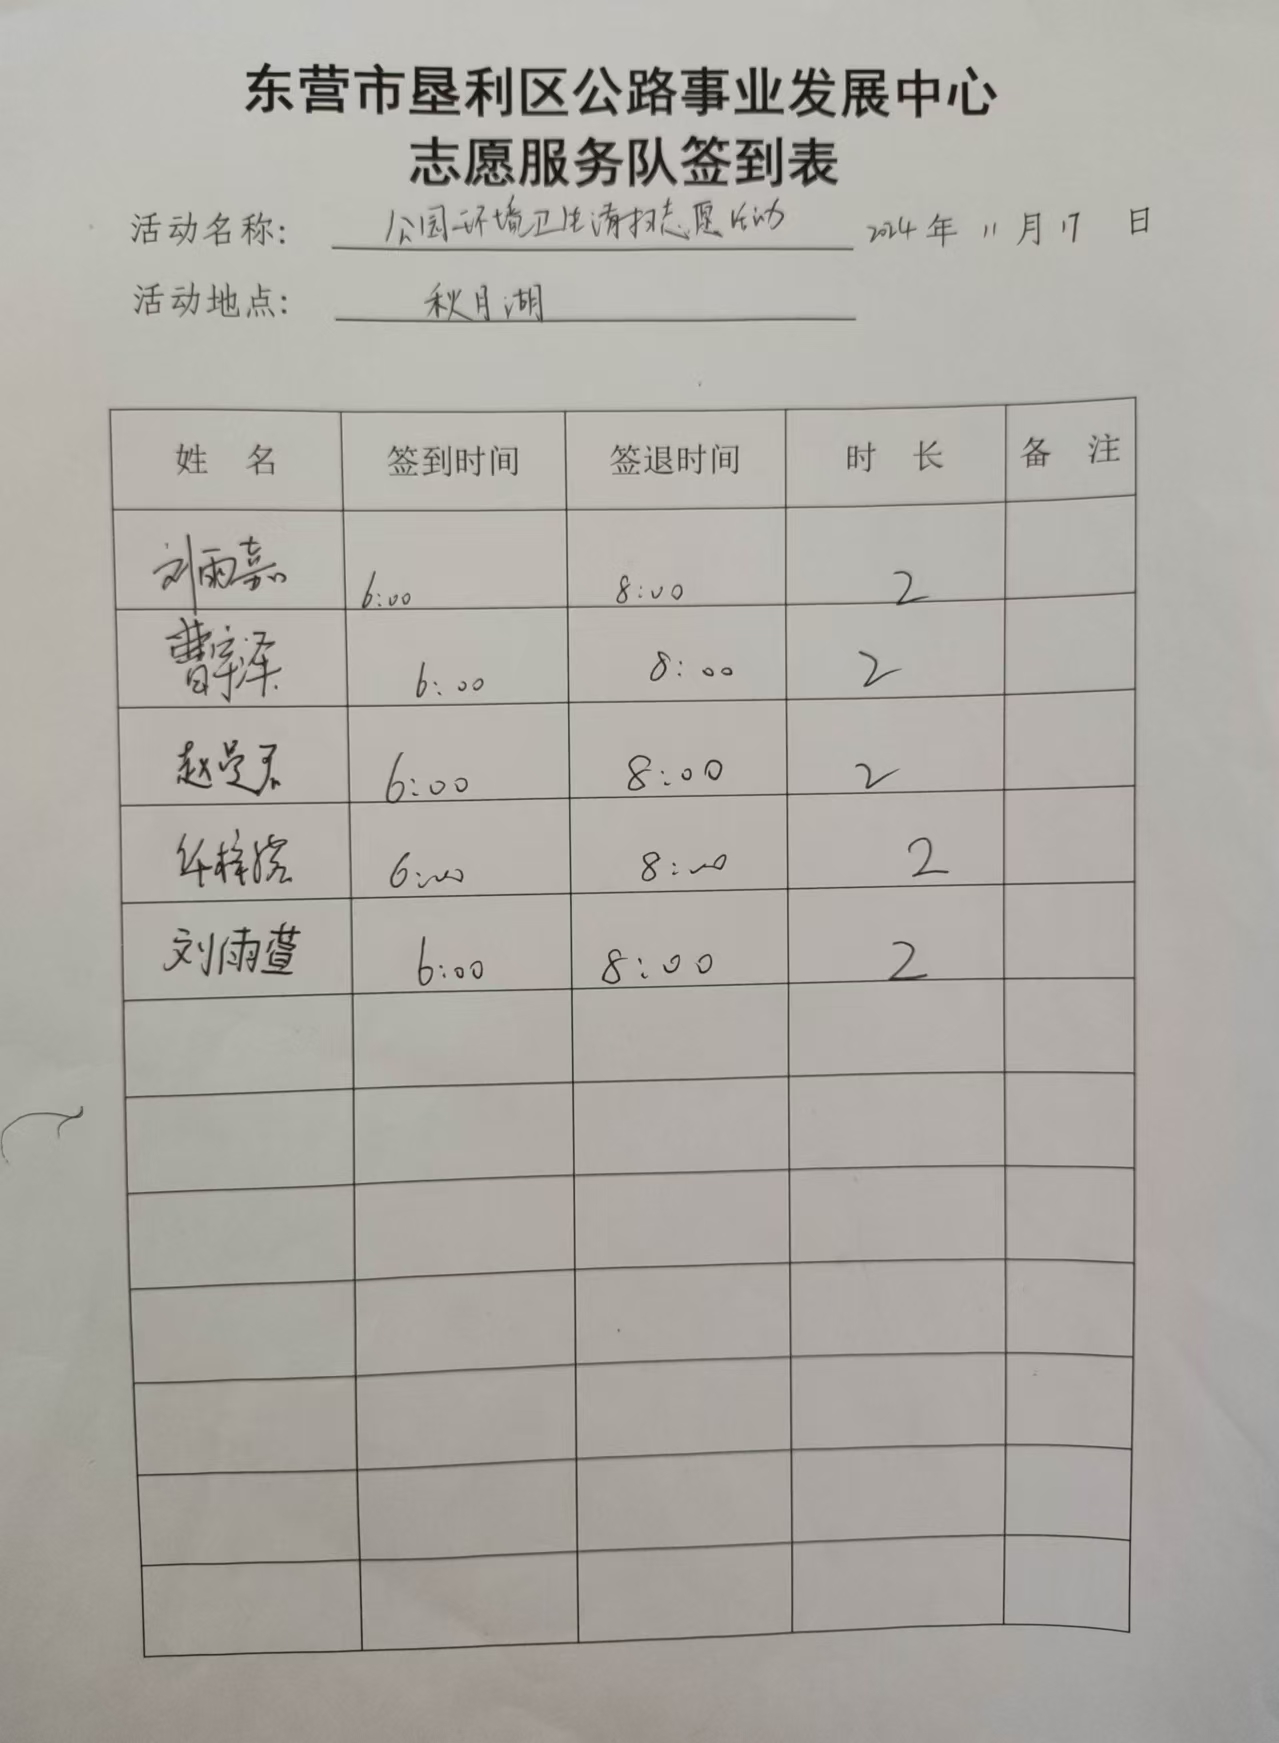 东营市垦利区公路事业发展中心
志愿服务队签到表
活动名称: 公园环境卫生清扫志愿活动 2024年 11月17 日
活动地点: 秋月湖
姓 名 签到时间 签退时间 时 长 备 注
刘雨嘉 6:00 8:00 2
曹宇泽 6:00 8:00 2
赵曼君 6:00 8:00 2
任梓 6:00 8:00 2
刘雨萱 6:00 8:00 2